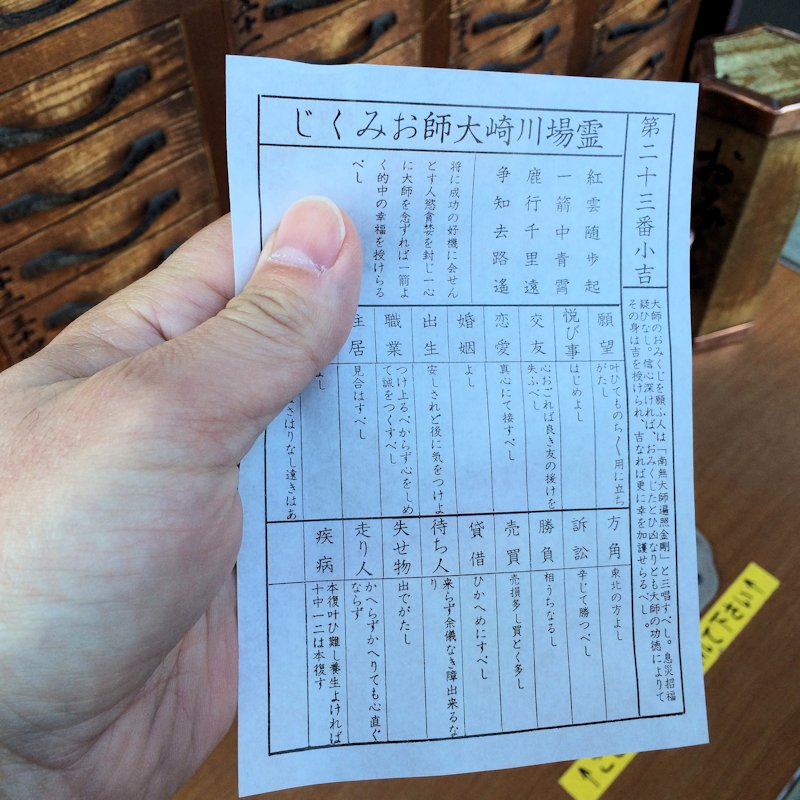 霊場川崎大師おみくじ
第二十三番小吉
紅雲随歩起
一箭中青霄
鹿行千里遠
争知去路遙
将に成功の好機に会せん
とす人慾貪婪を封じ一心
に大師を念ずれば一箭よ
く的中の幸福を授けらる
べし
大師のおみくじを願ふ人は「南無大師遍照金剛」と三唱すべし。息災招福
疑ひなし。信心深ければ、おみくじたとひ凶なりとも大師の功徳によりて
その身は吉を授けられ、吉なれば更に幸を加護せらるべし。
願望
叶ひてものちく用に立ち
がたし
悦び事
はじめよし
交友
心おごれば良き友の援けを
失ふべし
恋愛
真心にて接すべし
婚姻
よし
出生
安しされど後に気をつけよ
職業
つけ上るべからず心をしめ
て誠をつくすべし
住居
見合はすべし
さはりなし遠きはあ
し
方角
東北の方よし
訴訟
辛じて勝つべし
勝負
相うちなるし
売買
売損多し買とく多し
貸借
ひかへめにすべし
待ち人
来らず余儀なき障出来るな
り
失せ物
出でがたし
走り人
かへらずかへりても心直ぐ
ならず
疾病
本復叶ひ難し養生よければ
十中一二は本復す
下さい↑